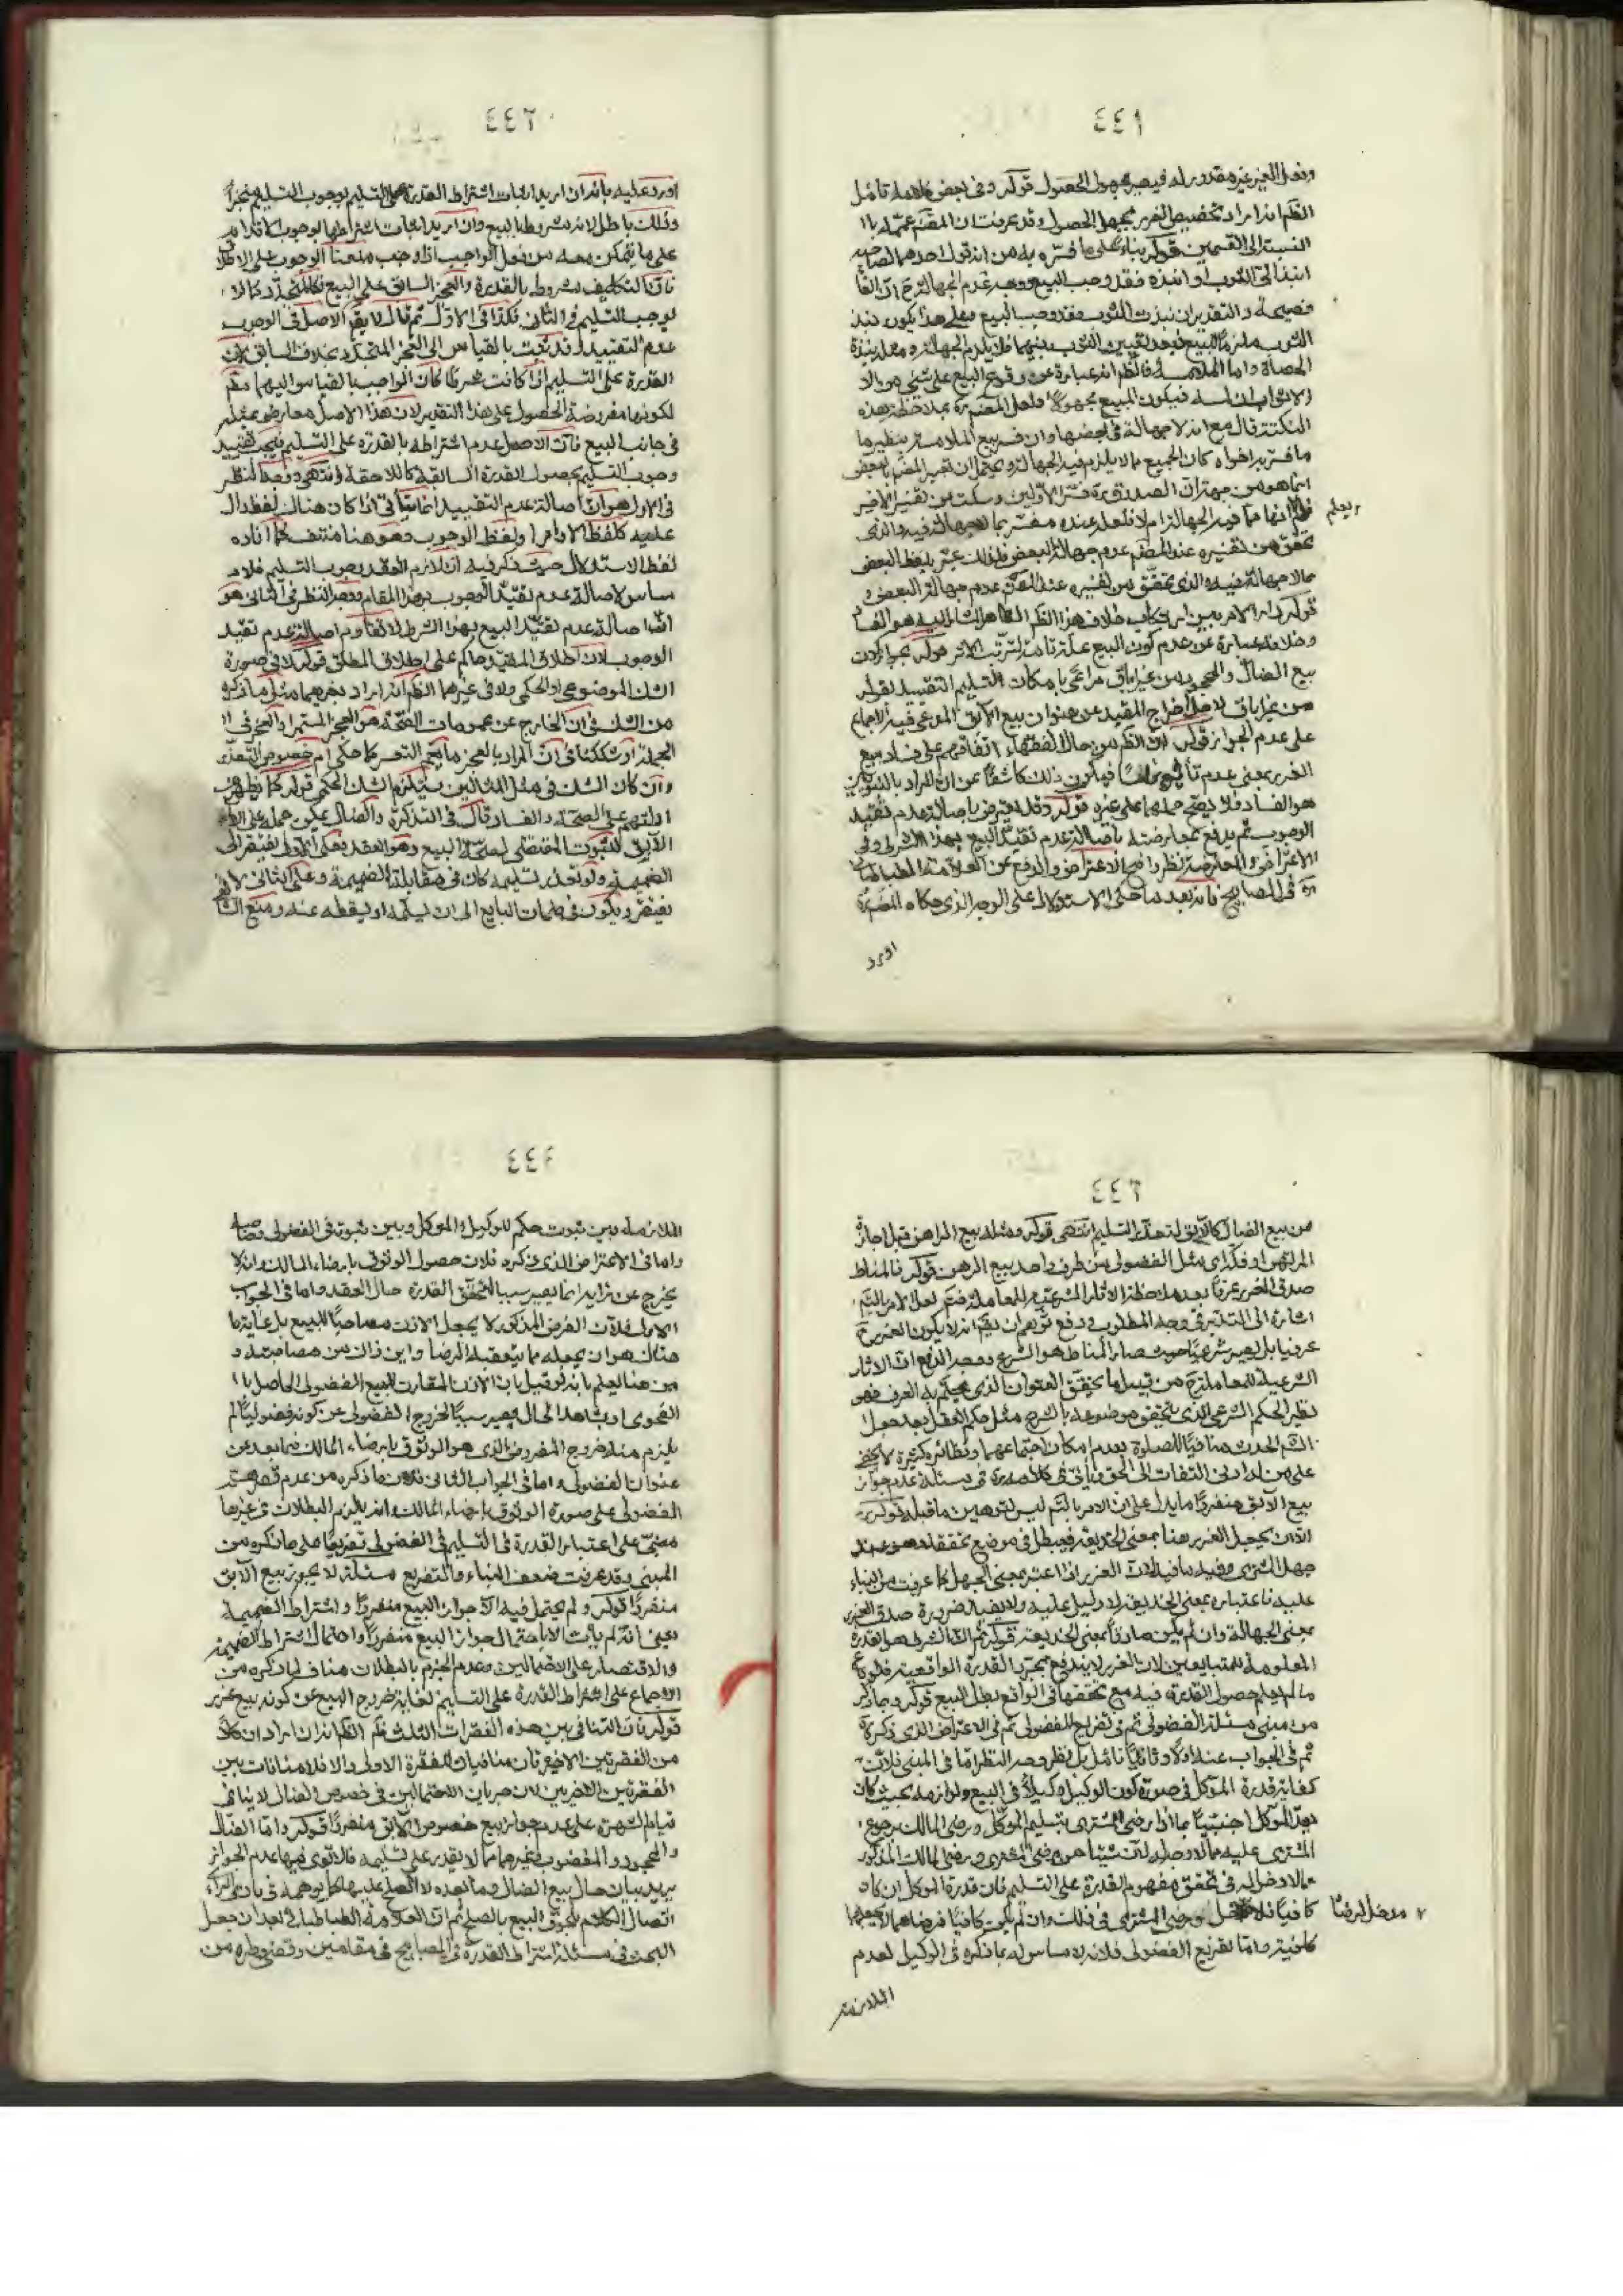 ٤٤١
وفعل الغير غير مقدور له فيصير مجهول الحصول قوله وفى بعض كلماته تأمل
الظّم انه اراد تخصيص الغرر بمجهول الحصول وقد عرفت ان المصّ عمّمه بال
النسبة الى القسمين قوله بناء على ما فسّره به من ان يقول احدهما لصاحبه
انبذ الىّ الثوب او انبذه فقد وجب البيع ووجه عدم الجهالة ح انّ
الثوب ملزمًا للبيع
الحصاة واما الملامسة فالظّم انه عبارة عن وقوع البيع على شئ
فيكون المبيع مجهولًا ولعل المصّ ره بملاحظة هذه
النكتة قال مع انه لا جهالة فى بعضها وان فسّر بيع الملامسة بنظير ما
ما فسّر به اخواه كان الجميع مما لا يلزم فيه الجهالة ويحتمل ان تعبير المصّ بالبعض
انما هو من جهة انّ الصدوق ره فسّر الاوّلين وسكت عن تفسير الاخير
فلم
يعلم
انها مما فيه الجهالة ام لا فلعل عنده مفسّر بما لا جهالة فيه والذى
تحقق من تفسيره عند المصّ عدم جهالة البعض فلذلك عبّر بلفظ البعض
مما لا جهالة فيه والذى تحقّق من تفسيره عند المصّ عدم جهالة البعض
قوله دار الامر بين ارتكاب خلاف هذا الظّم
وخلافه عبارة عن عدم كون البيع علّة تامّة لترتّب الاثر قوله
بيع الضالّ والمجحود من غير اباق مراعى بامكان التسليم التقييد بقوله
من غير اباق لاجل اخراج المقيد عن عنوان بيع الآبق المدّعى فيه الاجماع
على عدم الجواز قوله انّ الظّم من حال الفقهاء اتفاقهم على فساد بيع
الغرر بمعنى عدم تأثيره فيكون ذلك كاشفًا عن ان المراد بالنهى
هو الفساد فلا يصحّ حملها على غيره قوله وقد يعترض باصالة عدم تقييد
الوجوب ثم يدفع بمعارضته باصالة عدم تقيّد البيع بهذا الشرط وفى
الاعتراض والمعارضة نظر واضح الاعتراض والدفع من العلامة الطباطبائى
ره فى المصابيح فانه بعد ما حكى الاستدلال على الوجه الذى حكاه المصّ ره
اورد
٤٤٢
اورد عليه بانه ان اريد اثبات اشتراط القدرة على التسليم بوجوب التسليم منجزًا
وذلك باطل لانه مشروط بالبيع وان اريد اثبات اشتراطها بوجوب
على ما يتمكن معه من فعل الواجب اذا وجب منعنا الوجوب على الاطلاق
فانّ التكليف مشروط بالقدرة والعجز السابق على البيع كالمتجدّد فكما لا
يوجب التسليم فى الثانى فكذا فى الاوّل ثم قال لا يقم الاصل فى الوجوب
عدم التقييد وقد ثبت بالقياس الى العجز المتجدّد بخلاف السابق لانّ
القدرة على التسليم اذا كانت شرطًا كان الواجب بالقياس اليها مطم
لكونها مفروضة الحصول على هذا التقدير لان هذا الاصل معارض بمثله
فى جانب البيع فانّ الاصل عدم اشتراطه بالقدرة على التسليم فيجب تقييد
وجوب التسليم بحصول القدرة السابقة كاللاحقة انتهى ووجه النظر
فى الاول هو انّ اصالة عدم التقييد انما تتأتّى اذا كان هناك لفظ دال
عليه كلفظ الامر او لفظ الوجوب وهو هنا منتف كما افاده
لفظ الاستدلال حيث ذكر فيه انّ لازم العقد وجوب التسليم فلا
مساس لاصالة عدم تقيّد الوجوب بهذا المقام ووجه النظر فى الثانى هو
انّ اصالة عدم تقيّد البيع بهذا الشرط لا تقاوم اصالة عدم تقيد
الوجوب لان اطلاق المقيّد حاكم على اطلاق المطلق قوله لا فى صورة
الشك الموضوعى او الحكمى ولا فى غيرهما الظّم انه اراد بغيرهما مثل ما ذكره
من الشك فى ان الخارج عن عمومات الصحّة هو العجز المستمر او العجز فى ال
الجملة او شككنا فى انّ المراد بالعجز ما يعمّ التعسر كما حكى ام خصوص التعذّر
وان كان الشك فى مثل المثالين يستلزم الشك الحكمى قوله كما يظهر من
ادلتهم على الصحّة والفساد قال فى التذكرة والضال يمكن حمله على
الآبق لثبوت المقتضى لصحّة البيع وهو العقد فعلى الاوّل يفتقر الى
الضميمة ولو تعذّر تسليمه كان فى مقابلة الضميمة وعلى الثانى لا
يفتقر ويكون فى ضمان البايع الى ان يسلّمه او يسقطه عنه ومنع
٤٤٣
من بيع الضال كالآبق لتعذّر التسليم انتهى قوله ومثله بيع الراهن قبل اجازة
المرتهن او فكّه اى مثل الفضولى من طرف واحد بيع الرهن قوله فالمناط
صدق الغرر عرفًا بعد ملاحظة الاثار الشرعيّة للمعاملة فتم لعل الامر بالتّم
اشارة الى التدبّر فى وجه المطلوب ودفع توهم ان يقم انه لا يكون الغرر ح
عرفيا بل يصير شرعيًا حيث صار المناط هو الشرع ووجه الدفع انّ الاثار
الشرعية للمعاملة ح من قبيل ما يحقّق العنوان الذى يحكم به العرف فهو
نظير الحكم الشرعى الذى يتحقق موضوعه بالشرع مثل حكم العقل بعد جعل
الشّم الحدث منافيًا للصلوة بعدم امكان اجتماعهما ونظائره كثيرة لا تخفى
على من له ادنى التفات الى الحق ويأتى فى كلامه ره فى مسئلة عدم جواز
بيع الآبق منفردًا ما يدل على ان الامر بالتّم ليس لتوهين ما قبله قوله
الّا ان يجعل الغرر هنا بمعنى الخديعة فيبطل فى موضع تحققه وهو عند
جهل المشترى وفيه ما فيه لانّ الغرر اذا اعتبر بمعنى الجهل كما عرفت من البناء
عليه فاعتباره بمعنى الخديعة لا دليل عليه ولا يفيد ضرورة صدق الغرر
بمعنى الجهالة وان لم يكن صادقًا بمعنى الخديعة قوله ثم انّ الشرط هو القدرة
المعلومة للمتبايعين لان الغرر لا يندفع بمجرّد القدرة الواقعية فلو باع
ما لم يعلم حصول القدرة فيه مع تحققها فى الواقع بطل البيع قوله وما ذكر
من مبنى مسئلة الفضولى ثم فى تفريع الفضولى ثم فى الاعتراض الذى ذكره
ثم فى الجواب عنه اولًا وثانيًا تامّل بل نظر وجه النظر امّا فى المبنى فلانّ
كفاية قدرة الموكل فى صورة كون الوكيل وكيلًا فى البيع ولوازمه بحيث كان
يعدّ الموكل اجنبيًا بما اذا رضى المشترى بتسليم الموكّل ورضى المالك برجوع
المشترى عليه مما لا وجه له لانّ شيئا من رضى المشترى ورضى المالك المذكور
مما لا دخل له فى تحقق مفهوم القدرة على التسليم فان قدرة الموكل ان كان
كافيًا فلا
مدخل لرضا
ورضى المشترى فى ذلك وان لم يكن كافيًا فرضاهما لا يجعلها
كافية واما تفريع الفضولى فلانه لا مساس له بما ذكره فى الوكيل لعدم
الملازمة
٤٤٤
الملازمة بين ثبوت حكم للوكيل والموكل وبين ثبوته فى الفضولى
واما فى الاعتراض الذى ذكره فلان حصول الوثوق بامضاء المالك وانه لا
يخرج عن رأيه انما يصير سببا لتحقق القدرة حال العقد واما فى الجواب
الاول فلانّ الفرض المذكور لا يجعل الاذن مصاحبًا للبيع بل غاية ما
هناك هو ان يجعله مما يتعقبه الرضا واين ذاك من مصاحبته و
من هنا يعلم بانه لو قيل بان الاذن المقارن للبيع الفضولى الحاصل بال
الفحوى او شاهد الحال يصير سببًا لخروج الفضولى عن كونه فضوليًا لم
يلزم منه خروج المفروض الذى هو الوثوق بارضاء المالك فيما بعد عن
عنوان الفضولى واما فى الجواب الثانى فلان ما ذكره من عدم قصر
الفضولى على صورة الوثوق بامضاء المالك وانه يلزم البطلان فى غيرها
مبنىّ على اعتبار القدرة فى التسليم فى الفضولى تفريعًا على ما ذكره من
المبنى وقد عرفت ضعف البناء والتفريع مسئلة لا يجوز بيع الآبق
منفردًا قوله ولم يحتمل فيه الّا جواز البيع منفردًا واشتراط الضميمة
يعنى انّه لم يأت الا باحتمال جواز البيع منفردًا واحتمال اشتراط الضميمة
والاقتصار على الاحتمالين وعدم الجزم بالبطلان مناف لما ذكره من
الاجماع على اشتراط القدرة على التسليم لغاية خروج البيع عن كونه بيع غرر
قوله فانّ التنافى بين هذه الفقرات الثلث ظّم الظّم انه اراد ان كلًا
من الفقرتين الاخيرتان منافيان للفقرة الاولى والا فلا منافات بين
الفقرتين الاخيرتين لان جريان الاحتمالين فى خصوص الضال لا ينافى
قيام الشهرة على عدم جواز بيع خصوص الآبق منفردًا قوله وامّا الضالّ
والمجحود والمغصوب وغيرهما مما لا يقدر على تسليمه فالاقوى فيها عدم الجواز
يريد بيان حال بيع الضال وما بعده لا الصلح عليها كما يوهمه فى بادى الرأى
اتصال الكلام بلحوق البيع بالصلح ثم انّ العلامة الطباطبائى بعد ان جعل
البحث فى مسئلة اشتراط القدرة فى المصابيح فى مقامين وقضى وطره من